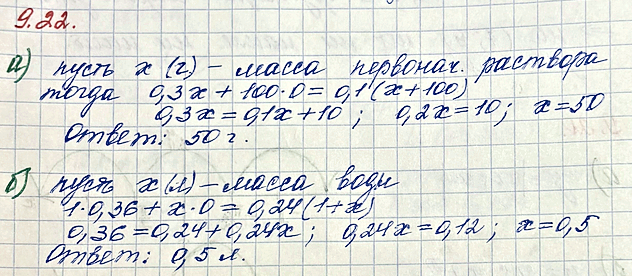 9.22.
а) пусть x (г) – масса первонач. раствора
тогда 0,3x + 100·0 = 0,1(x+100)
0,3x = 0,1x + 10 ; 0,2x = 10 ; x = 50
Ответ: 50 г.
б) пусть x (л) – масса воды
1·0,36 + x·0 = 0,24(1+x)
0,36 = 0,24 + 0,24x ; 0,24x = 0,12 ; x = 0,5
Ответ: 0,5 л.